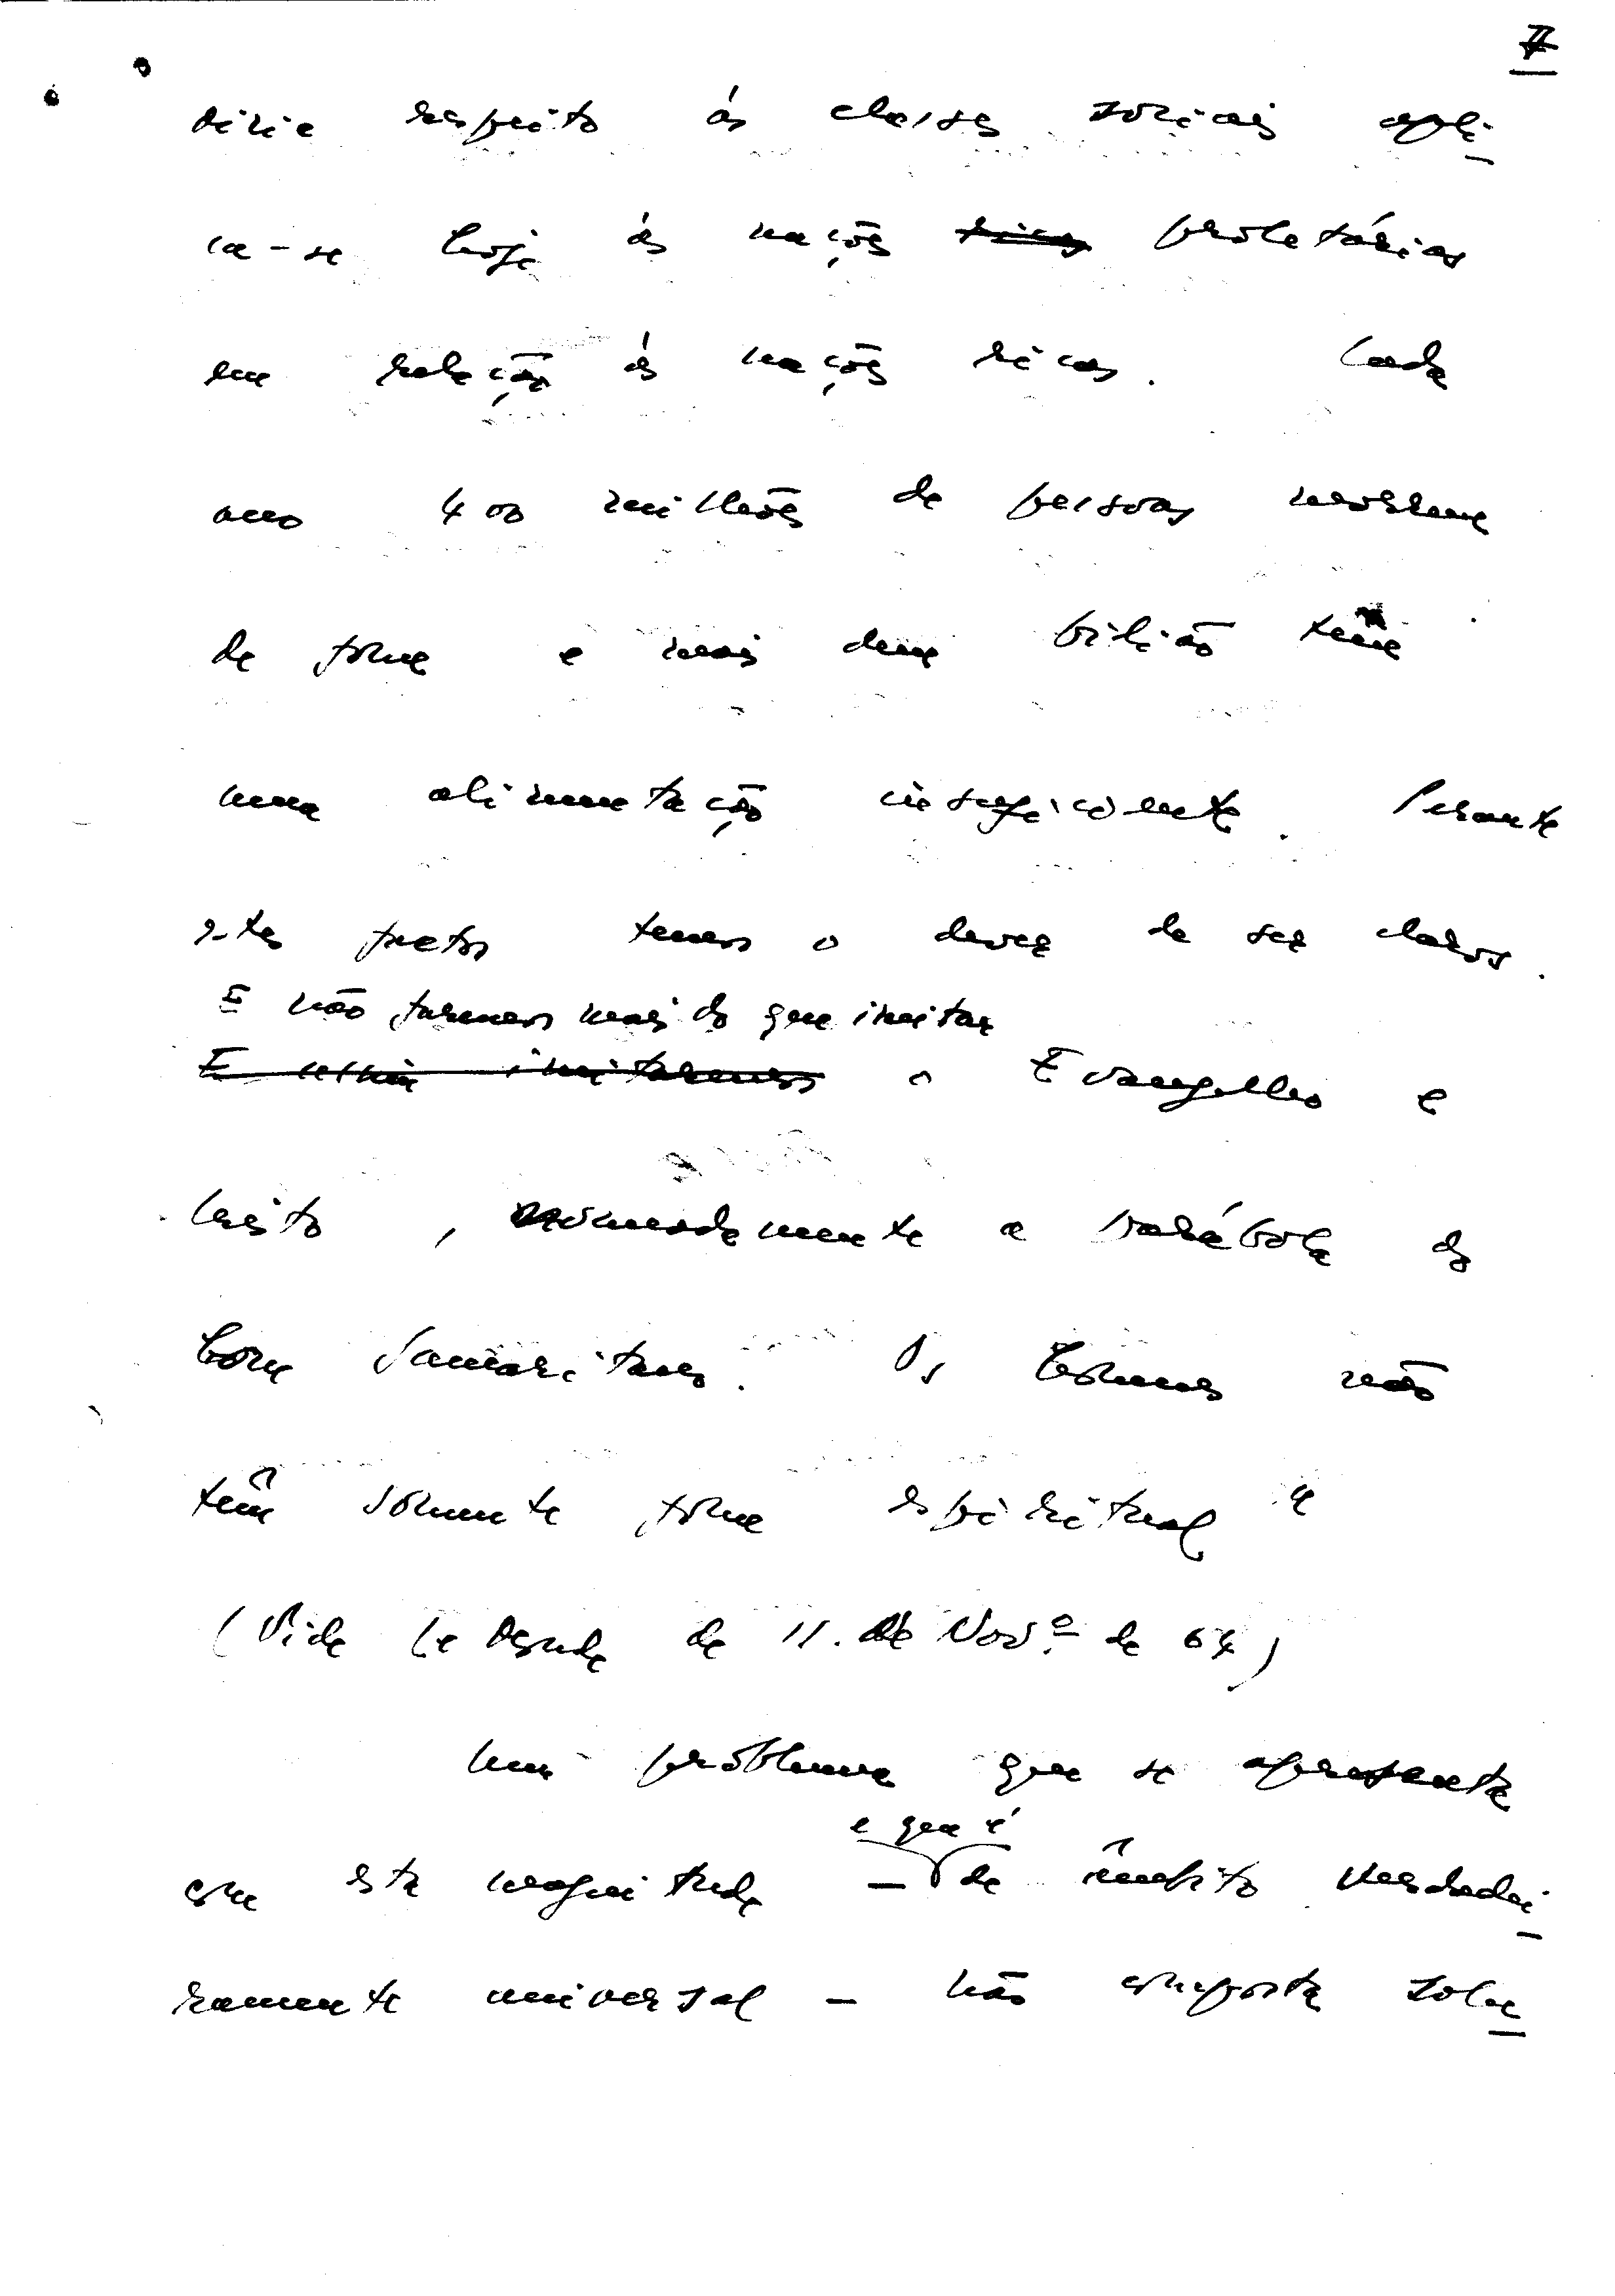 7
dizia respeito ás classes sociais apli-
ca-se hoje ás nações ricas proletárias
em relação ás nações ricas. Cada
ano 400 milhões de pessoas morrem
de fome e mais dum bilião têm
uma alimentação insuficiente. Perante
estes factos temos o dever de ser claros.
E não faremos mais do que imitar
E assim imitaremos o Evangelho e
Cristo, nomeadamente a parábola do
bom Samaritano. Os homens não
têm somente fome espiritual"
(Vide Le Monde de 11 de Novº de 64)
Um problema que se apresenta
e que é
com esta magnitude – de âmbito verdadei-
ramente universal – não comporta solu-